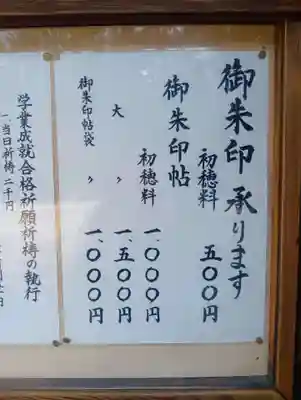 御朱印承ります
初穂料 五〇〇円
御朱印帖
初穂料 一、〇〇〇円
大 〃 一、五〇〇円
御朱印帖袋 〃 一、〇〇〇円
学業成就合格祈願祈祷の執行
一、当日祈祷 二千円